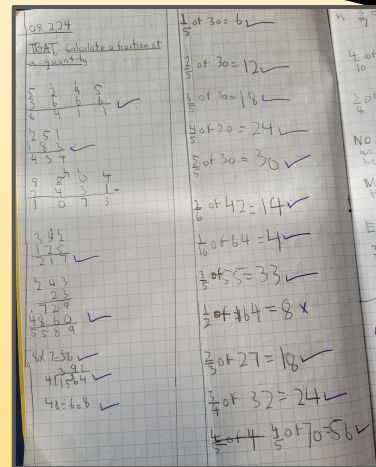 08.2.24
TBAT Calculate a fraction of
a quantity
5 2 4 5
3 6 6 6
8 9 1 1
2 5 1
1 8 3
4 3 4
1 0 7 3
3 4 2
1 2 5
2 1 7
2 4 3
2 3
7 2 9
4 8 6 0
5 5 8 9
8x7=56
391
4 1564
48÷6=8
1/5 of 30=6
2/5 of 30=12
3/5 of 30=18
4/5 of 30=24
5/5 of 30=30
2/6 of 42=14
1/16 of 64=4
3/5 of 55=33
1/2 of 164=8 x
2/3 of 27=18
3/4 of 32=24
4/5 of 4 4/5 of 70=56
No